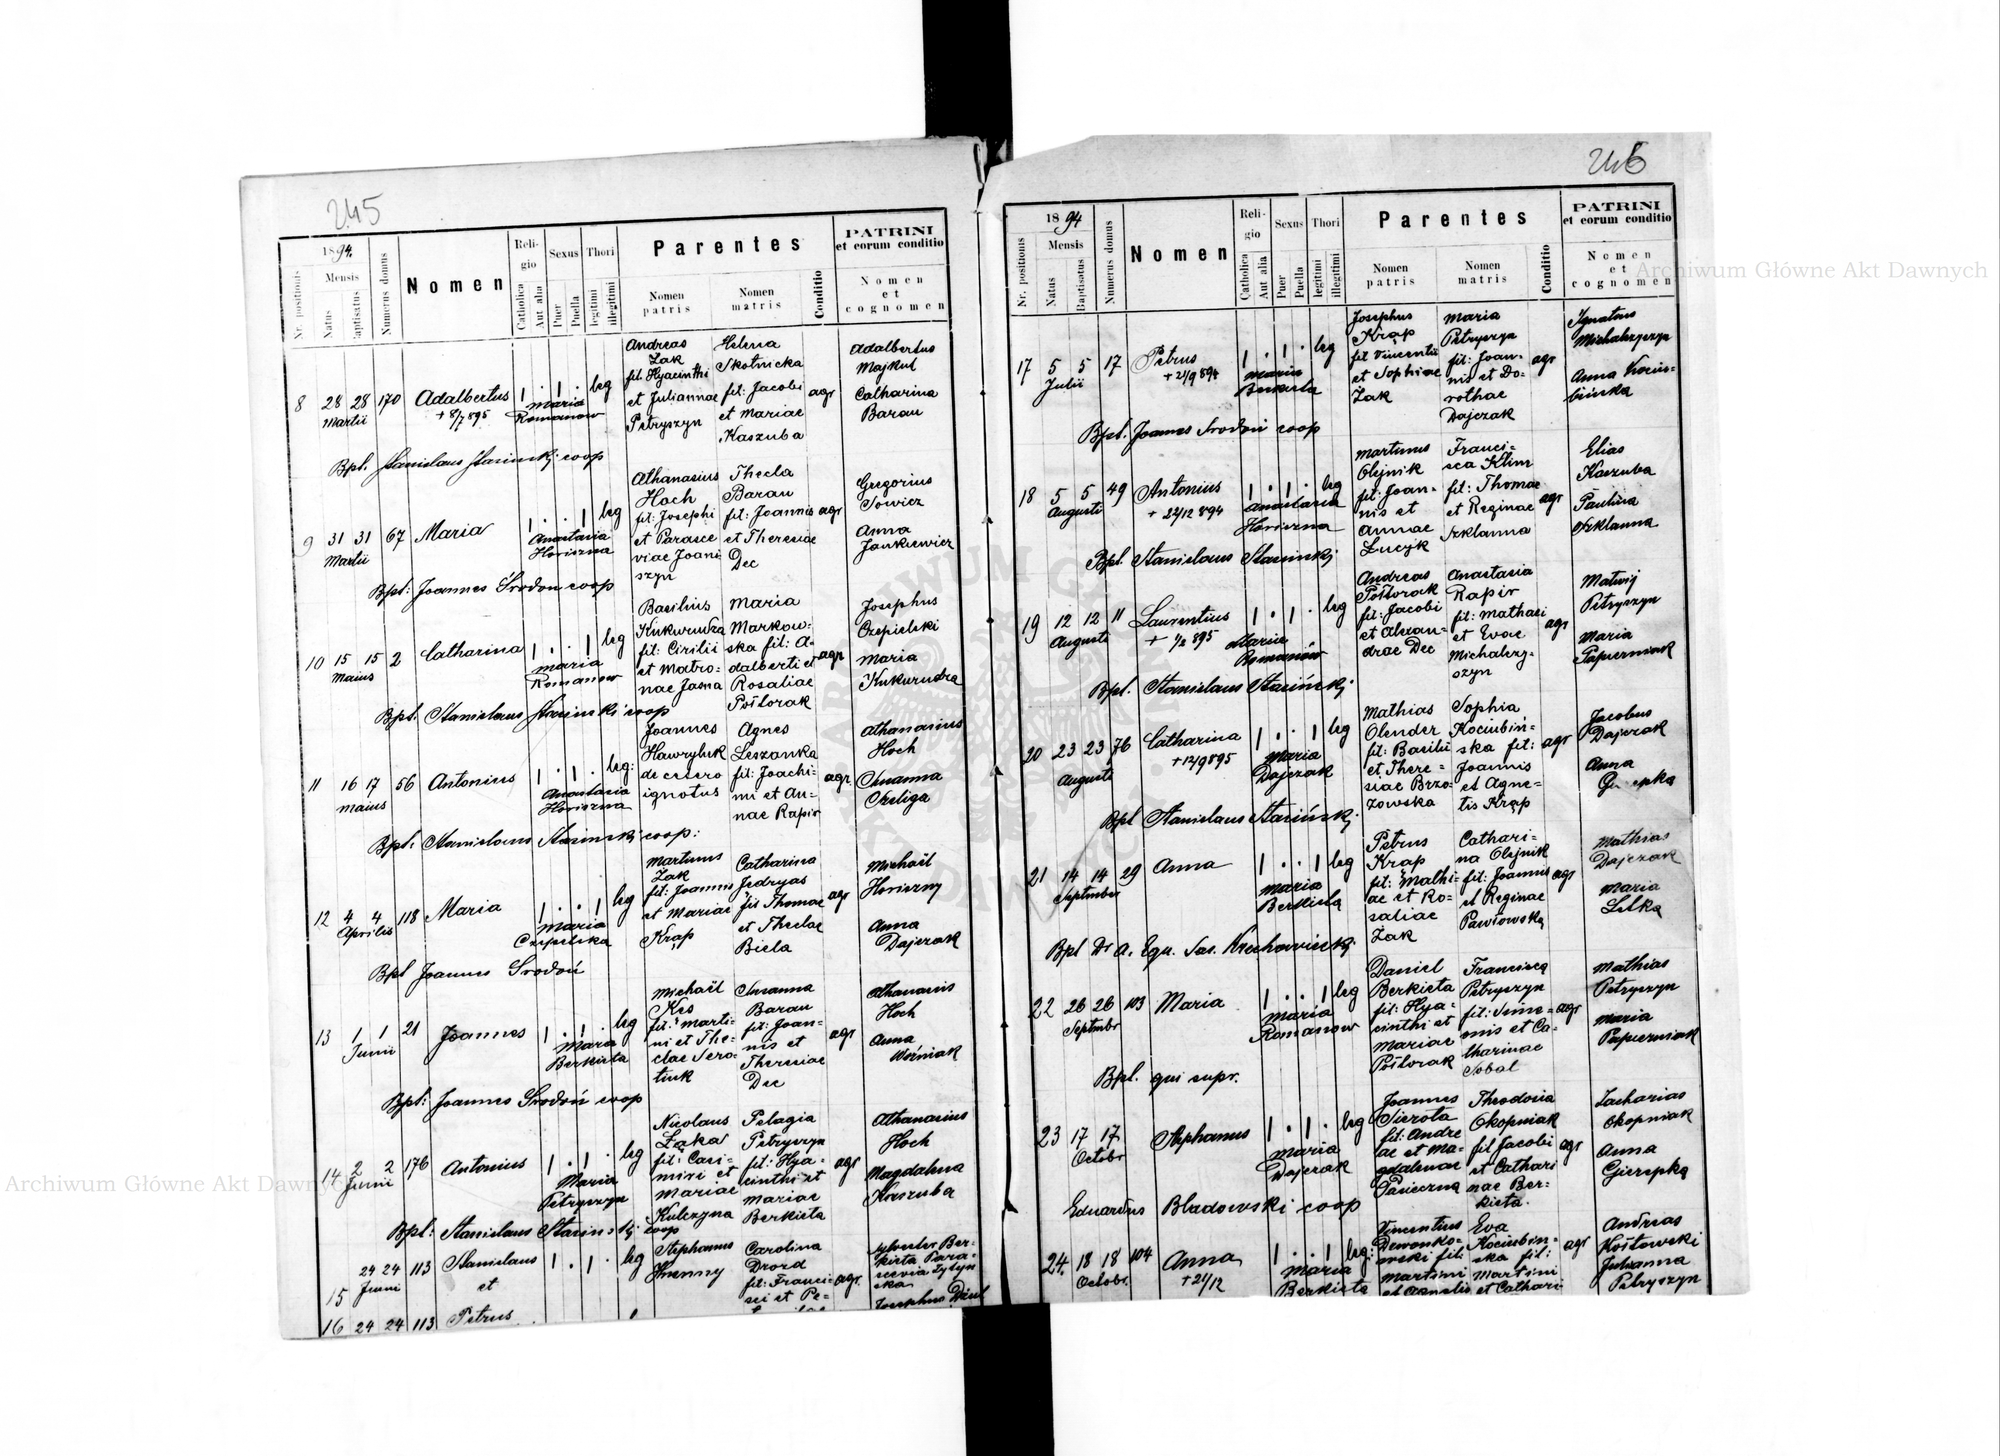 245
1894.
Nr. positionis
Mensis
Natus
baptisatus
Numerus domus
Nomen
Religio
Catholica
Aut alia
Sexus
Puer
Puella
Thori
legitimi
illegitimi
Parentes
Nomen patris
Nomen matris
Conditio
PATRINI
et eorum conditio
Nomen
et
cognomen
8 28 28 170 Adalbertus 1 . 1 . leg
Martii
+ 8/7 895
Maria
Romanow
Andreas
Żak
fil: Hyacinthi
et Juliannae
Petryszyn
Helena
Skotnicka
fil: Jacobi
et Mariae
Kaszuba
agr
Adalbertus
Majkut
Catharina
Baran
Bpt. Stanislaus Stasinski coop
9 31 31 67 Maria 1 . . 1 leg
Martii
Anastasia
Horiszna
Athanasius
Hoch
fil: Josephi
et Parasce
viae Joani
szyn
Thecla
Baran
fil: Joannis
et Theresiae
Dec
agr
Gregorius
Sowicz
Anna
Jankiewicz
Bpt: Joannes Środoń coop
10 15 15 2 Catharina 1 . . 1 leg
Maius
Maria
Romanow
Basilius
Kukurudza
fil: Cirilii
et Matro-
nae Jasna
Maria
Markow-
ska fil: A-
dalberti et
Rosaliae
Połtorak
agr
Josephus
Czepielski
Maria
Kukurudza
Bpt. Stanislaus Stasinski coop
11 16 17 56 Antonius 1 . 1 . leg:
Maius
Anastasia
Horiszna
Joannes
Hawryluk
de cetero
ignotus
Agnes
Leszanka
fil: Joachi-
mi et An-
nae Rapir
agr.
Athanasius
Hoch
Susanna
Szeliga
Bpt: Stanislaus Stasinski coop:
12 4 4 118 Maria 1 . . 1 leg
Aprilis
Maria
Czepielska
Martinus
Żak
fil: Joannis
et Mariae
Krap
Catharina
Jedryas
fil Thomae
et Theclae
Biela
agr
Michaël
Horiszny
Anna
Dajczak
Bpt Joannes Środoń
13 1 1 21 Joannes 1 . 1 . leg
Junii
Maria
Berkieta
Michaël
Kes
fil: Marti-
ni et The-
clae Sero-
tiuk
Susanna
Baran
fil: Joan-
nis et
Theresiae
Dec
agr
Athanasius
Hoch
Anna
Woźniak
Bpt: Joannes Środoń coop
14 2 2 176 Antonius 1 . 1 . leg
Junii
Maria
Petryszyn
Nicolaus
Łąka
fil: Casi-
miri et
Mariae
Kulczyna
Pelagia
Petryszyn
fil: Hya-
cinthi et
Mariae
Berkieta
agr
Athanasius
Hoch
Magdalena
Kaszuba
Bpt: Stanislaus Stasinskij coop
15 24 24 113 Stanislaus 1 . 1 . leg
Junii
et
Stephanus
Carolina
Drozd
fil: Franci-
sci et Pe-
agr.
Sylvester Ber-
kieta Para-
scevia
ska
Josephus
16 24 24 113 Petrus
246
1894
Nr. positionis
Mensis
Natus
Baptisatus
Numerus domus
Nomen
Religio
Catholica
Aut alia
Sexus
Puer
Puella
Thori
legitimi
illegitimi
Parentes
Nomen patris
Nomen matris
Conditio
PATRINI
et eorum conditio
Nomen
et
cognomen
17 5 5 17 Petrus 1 . 1 . leg
Julii
+ 21/9 894
Maria
Berkieta
Josephus
Krąp
fil Vincentii
et Sophiae
Żak
Maria
Petryszyn
fil: Joan-
nis et Do-
rothae
Dajczak
agr
Ignatius
Michalczyszyn
Anna Kociu-
bińska
Bpt. Joannes Środoń coop
18 5 5 49 Antonius 1 . 1 . leg
Augusti
+ 22/12 894
Anastasia
Horiszna
Martinus
Olejnik
fil: Joan-
nis et
Annae
Łucyk
Franci-
sca Klim
fil: Thomae
et Reginae
Szklanna
agr
Elias
Kaszuba
Paulina
Szklanna
Bpt. Stanislaus Stasinskj
19 12 12 11 Laurentius 1 . 1 . leg
Augusti
+ 1/2 895
Maria
Romanów
Andreas
Połtorak
fil: Jacobi
et Alexan-
drae Dec
Anastasia
Rapir
fil: Mathaei
et Evae
Michalczy-
szyn
agr
Matwij
Petryszyn
Maria
Papierniak
Bpt. Stanislaus Stasińskj
20 23 23 76 Catharina 1 . . 1 leg
Augusti
+ 12/9 895
Maria
Dajczak
Mathias
Olender
fil: Basilii
et There-
siae Brzo-
zowska
Sophia
Kociubiń-
ska fil:
Joannis
et Agne-
tis Krąp
agr
Jacobus
Dajczak
Anna
Bpt Stanislaus Stasińskj.
21 14 14 29 Anna 1 . . 1 leg
Septmber
Maria
Berkieta
Petrus
Krap
fil: Mathi-
ae et Ro-
saliae
Żak
Cathari-
na Olejnik
fil: Joannis
et Reginae
Pawłowską
agr
Mathias
Dajczak
Maria
Letką
Bpt Dr A. Equ. Sas. Krechowieckj.
22 26 26 103 Maria 1 . . 1 leg
Septmbr
Maria
Romanow
Daniel
Berkieta
fil: Hya-
cinthi et
Mariae
Połtorak
Franciscą
Petryszyn
fil: Sime-
onis et Ca-
tharinae
Sobal
agr
Mathias
Petryszyn
Maria
Papierniak
Bpt. qui supr.
23 17 17 Stephanus 1 . 1 . leg
Octobr
Maria
Dajczak
Joannes
Sierota
fil: Andre
ae et Ma-
gdalenae
Pasieczną
Theodosia
Okopniak
fil Jacobi
et Cathari
nae Ber-
kieta.
agr
Zacharias
Okopniak
Anna
Gierepką
Eduardus Bładowski coop
24. 18 18 104 Anna 1 . . 1 leg:
Octobr.
+ 21/12
Maria
Berkieta
Vincentius
Dzwonko-
wski fil:
Martini
Eva
Kociubin-
ska fil:
Martini
et Cathari
agr
Andreas
Kołtowski
Julianna
Petryszyn
Archiwum Główne Akt Dawnych
Archiwum Główne Akt Dawnych
Archiwum Główne Akt Dawnych